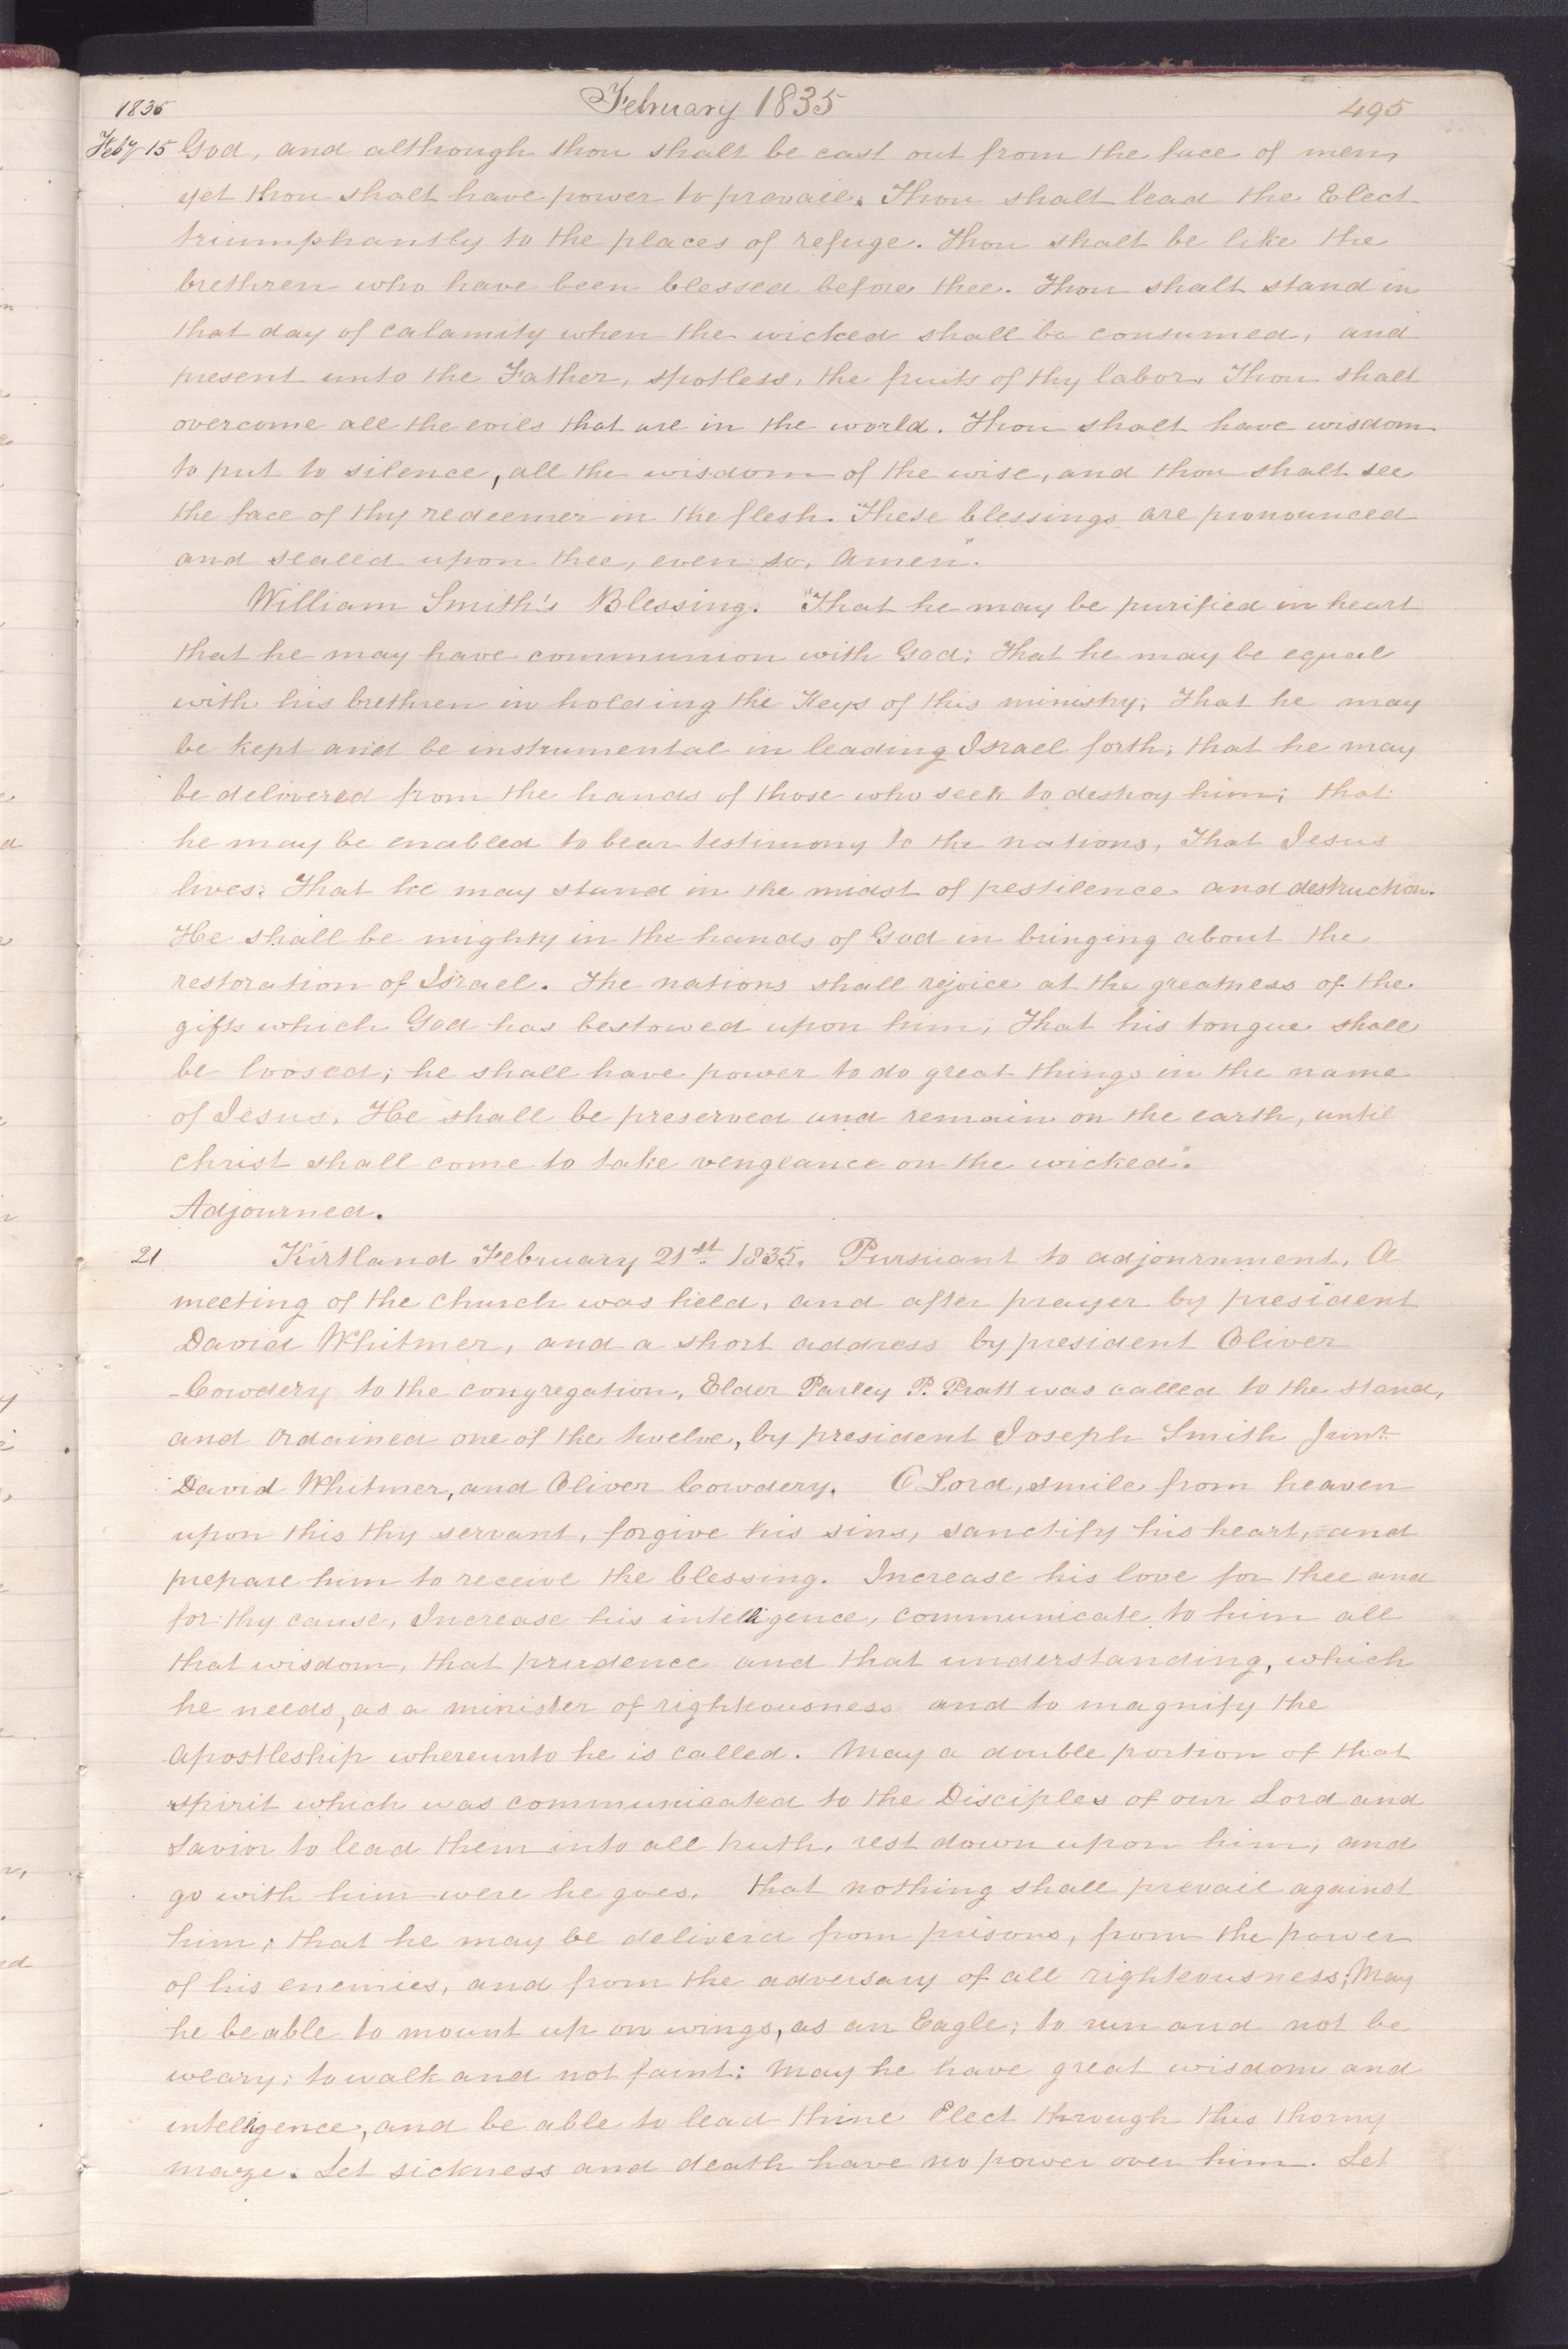 1835 February 1835 495
Feby 15 God, and although thou shalt be cast out from the face of men,
yet thou shalt have power to prevail. Thou shalt lead the Elect
triumphantly to the places of refuge. Thou shalt be like the
brethren who have been blessed before thee. Thou shalt stand in
that day of calamity when the wicked shall be consumed, and
present unto the Father, spotless, the fruits of thy labor. Thou shalt
overcome all the evils that are in the world. Thou shalt have wisdom
to put to silence, all the wisdom of the wise, and thou shalt see
the face of thy redeemer in the flesh. These blessings are pronounced
and sealed upon thee, even so, Amen".
William Smith's Blessing. "That he may be purified in heart
that he may have communion with God; That he may be equal
with his brethren in holding the Keys of this ministry; That he may
be kept and be instrumental in leading Israel forth; that he may
be delivered from the hands of those who seek to destroy him; that
he may be enabled to bear testimony to the nations, That Jesus
lives; That he may stand in the midst of pestilence and destruction.
He shall be mighty in the hands of God in bringing about the
restoration of Israel. The nations shall rejoice at the greatness of the
gifts which God has bestowed upon him; That his tongue shall
be loosed; he shall have power to do great things in the name
of Jesus. He shall be preserved and remain on the earth, until
Christ shall come to take vengeance on the wicked".
Adjourned.
21 Kirtland February 21st 1835. Pursuant to adjournment, A
meeting of the church was held, and after prayer by president
David Whitmer, and a short address by president Oliver
Cowdery to the congregation, Elder Parley P. Pratt was called to the stand,
and ordained one of the twelve, by president Joseph Smith Junr
David Whitmer, and Oliver Cowdery. O Lord, smile from heaven
upon this thy servant, forgive his sins, sanctify his heart, and
prepare him to receive the blessing. Increase his love for thee and
for thy cause, Increase his intelligence, communicate to him all
that wisdom, that prudence and that understanding, which
he needs, as a minister of righteousness and to magnify the
Apostleship whereunto he is called. May a double portion of that
spirit which was communicated to the Disciples of our Lord and
Savior to lead them into all truth, rest down upon him, and
go with him were he goes. that nothing shall prevail against
him; that he may be deliverd from prisons, from the power
of his enemies, and from the adversary of all righteousness; May
he be able to mount up on wings, as an Eagle; to run and not be
weary; to walk and not faint; May he have great wisdom and
intelligence, and be able to lead thine Elect through this thorny
maze. Let sickness and death have no power over him. Let